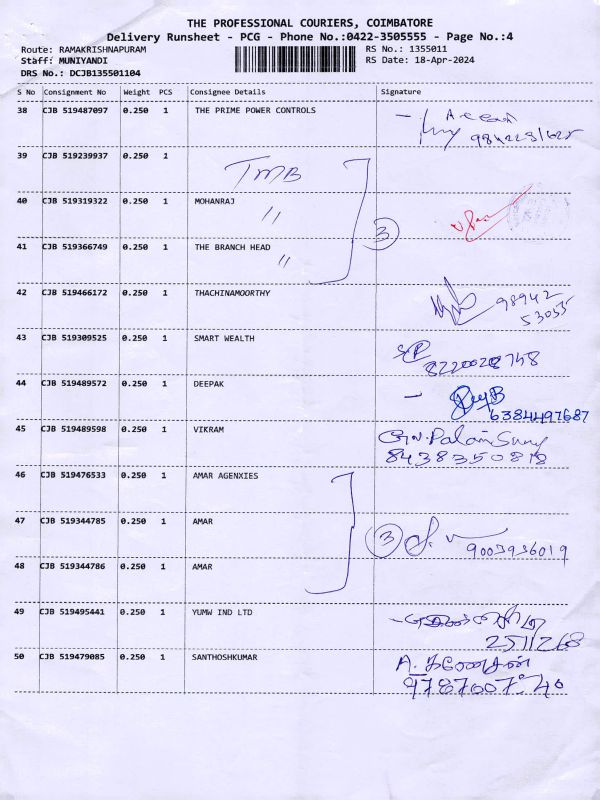 THE PROFESSIONAL COURIERS, COIMBATORE
Delivery Runsheet - PCG - Phone No.:0422-3505555 - Page No.:4
Route: RAMAKRISHNAPURAM RS No.: 1355011
Staff: MUNIYANDI RS Date: 18-Apr-2024
DRS No.: DCJB135501104
S No Consignment No Weight PCS Consignee Details Signature
38 CJB 519487097 0.250 1 THE PRIME POWER CONTROLS
39 CJB 519239937 0.250 1
TMB
40 CJB 519319322 0.250 1 MOHANRAJ
"
3
41 CJB 519366749 0.250 1 THE BRANCH HEAD
"
42 CJB 519466172 0.250 1 THACHINAMOORTHY
98942
53055
43 CJB 519309525 0.250 1 SMART WEALTH
44 CJB 519489572 0.250 1 DEEPAK
6384497687
45 CJB 519489598 0.250 1 VIKRAM
8438350818
46 CJB 519476533 0.250 1 AMAR AGENXIES
47 CJB 519344785 0.250 1 AMAR
3 9003936019
48 CJB 519344786 0.250 1 AMAR
49 CJB 519495441 0.250 1 YUMW IND LTD
2511268
50 CJB 519479085 0.250 1 SANTHOSHKUMAR
A. கணேசன்